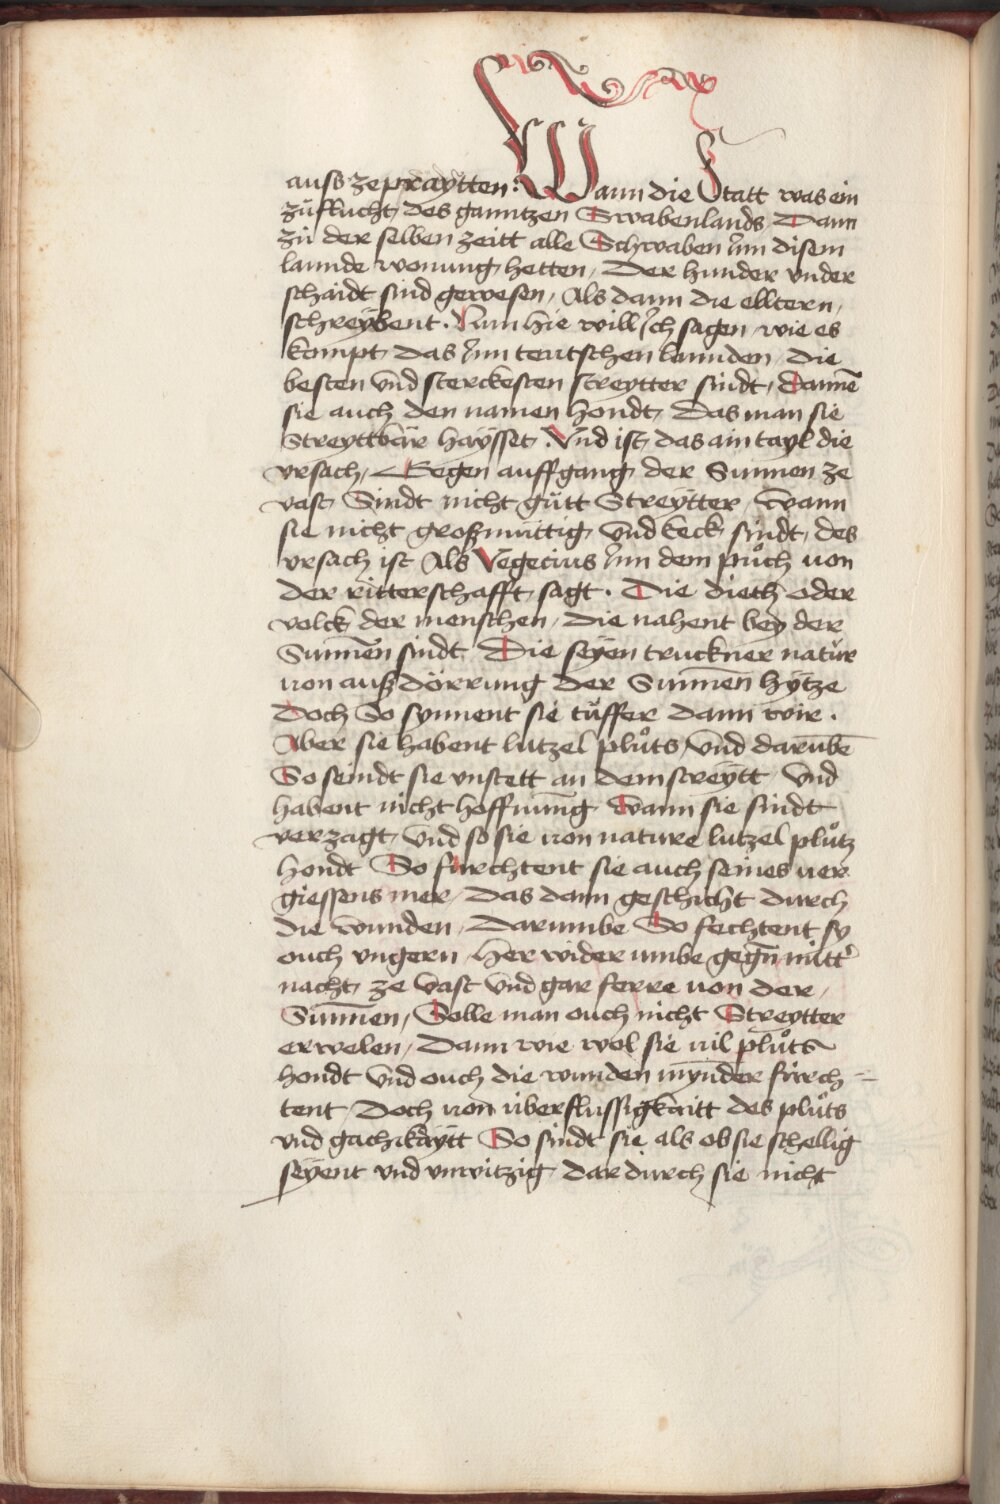 auss zepraÿtten: Wann die Statt was ein
zuͦflucht des ganntzen Swabenlands, Dann
zuͦ der selben zeitt alle Schwaben Inn disem
lannde wonung hetten, Der hunder vnder
schaidt sind gewesen, Als dann die elltern,
schreÿbent. Nun hie will Ich sagen wie es
kompt das Inn teutschen lannden die
besten vnd sterckesten streytter sindt, Dannē
sie auch den namen hondt, Das man sie
Streyttbär haÿsset. Vnd ist das ain tayl die
vrsach, Gegen auffgang der Sunnen ze
vast Sindt nicht guͦtt Streÿtter, wann
sie nicht großmüttig vnd keck sindt, des
vrsach ist Als Vegecius Inn dem puͦch von
der ritterschafft sagt. Die dieth oder
volck der menschen, die nahent bey der
Sunnēn sindt, Die seÿen truckner natuͦr
von außdörrung der Sunnēn hÿtze
Doch So synnent sie tüffer dann wir.
Aber sie habent lutzel pluͦts vnd darumbē
So seindt sie vnstett an dem streÿtt vnd
habent nicht hoffnung wann sie sindt
verzagt, vnd so sie von nature lutzel pluͦtz
hondt So furchtent sie auch seines ver
giessens mer, das dann geschicht durch
die wunden, Darumbe So fechtent sy
ouch vngern, Her wider umbe gegn̄ mitt'
nacht ze vast vnd gar ferre von der,
Sunnēn, Solle man ouch nicht Streytter
erwelen, Dann wie wol sie vil pluͦts
hondt vnd ouch die wunden mÿnder fürch=
tent Doch von überflussigkaitt des pluͦts
vnd gachikäÿtt So sindt sie als ob sie schellig
seÿent vnd vnwitzig dar durch sie nicht